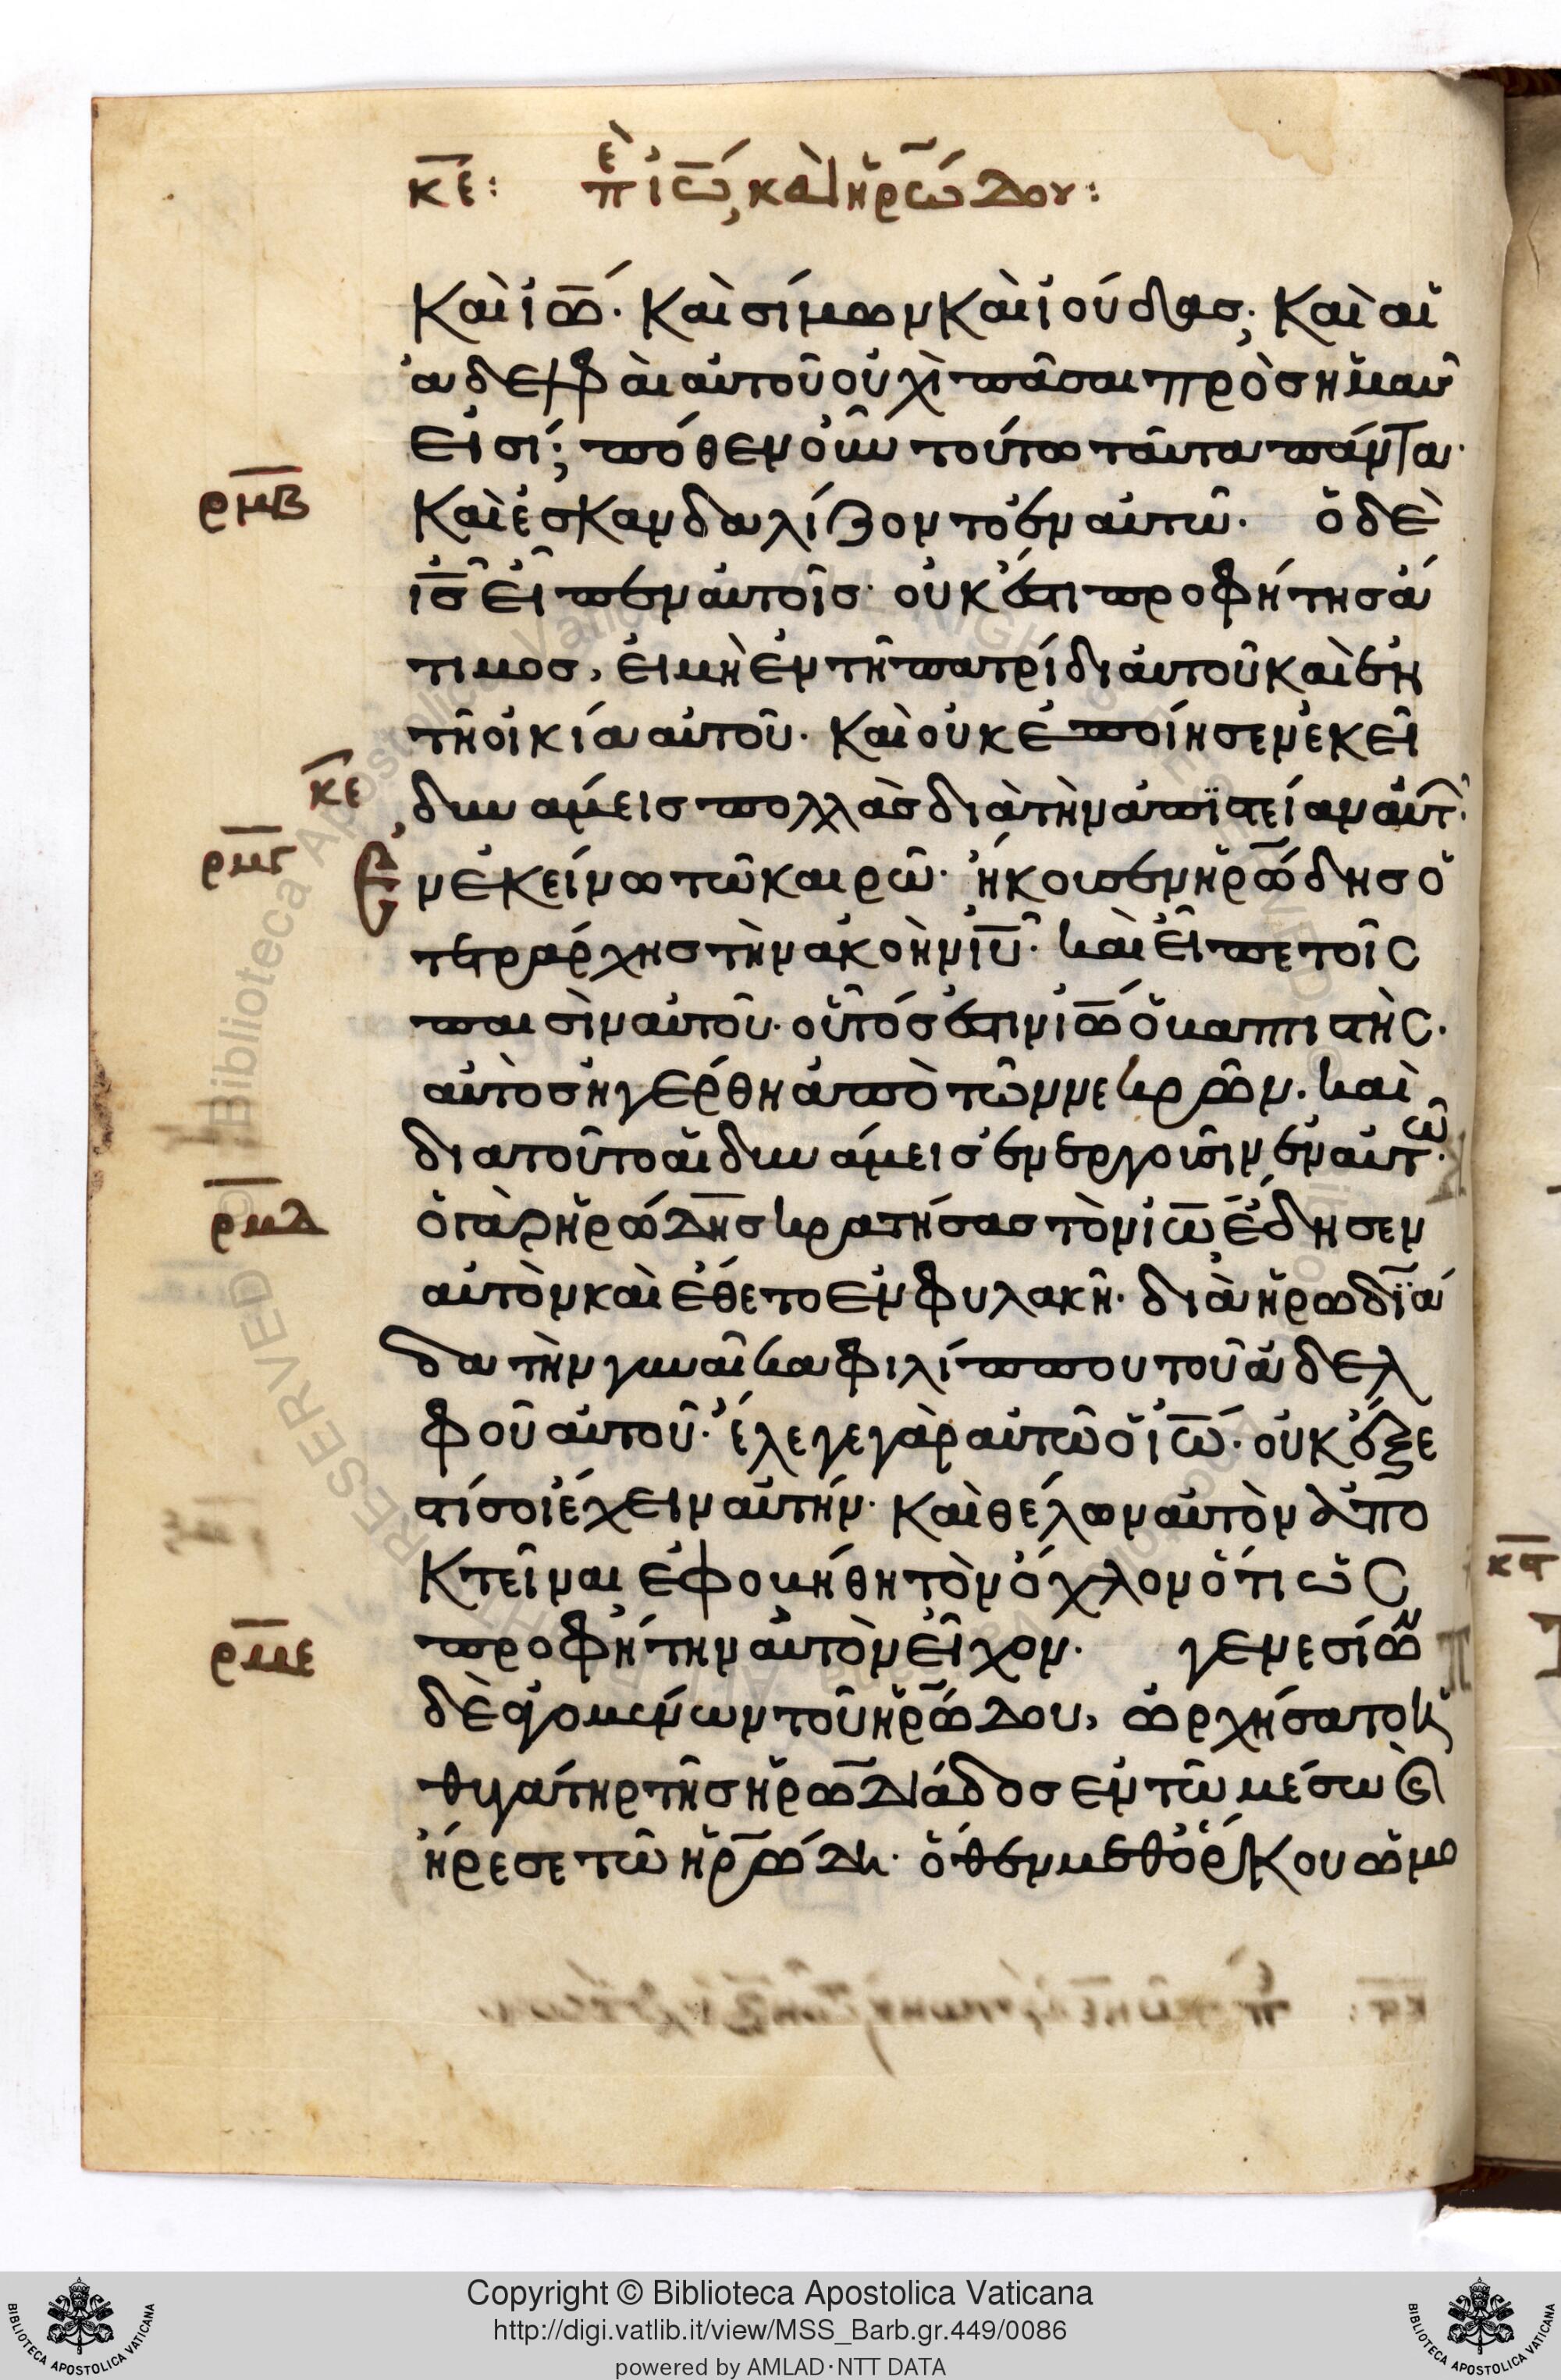 κε: ἐπὶ ἰω, καὶ ἡρώδου:
Καὶ ἰω. Καὶ σίμων Καὶ ἰούδας; Καὶ αἱ
ἀδελφαὶ αὐτοῦ οὐχὶ πᾶσαι πρὸς ἡμᾶς
εἰσί; πόθεν οὖν τούτω ταῦτα πάντα·
ρμβ Καὶ ἐσκανδαλίζοντο ἐν αὐτῶ. ὁ δὲ
ις εἶπεν αὐτοῖς· οὐκ ἔστι προφήτης ἄ
τιμος, εἰ μὴ ἐν τῆ πατρίδι αὐτοῦ καὶ ἐν
τῆ οἰκία αὐτοῦ. Καὶ οὐκ ἐποίησεν ἐκεῖ
κε δυνάμεις πολλὰς διὰ τὴν ἀπιστείαν αὐτ·
ρμγ Ἐν ἐκείνω τῶ καιρῶ. ἤκουσεν ἡρώδης ὁ
τετράρχης τὴν ἀκοὴν ιυ. καὶ εἶπε τοῖς
παισὶν αὐτοῦ. οὗτός ἐστιν ἰω ὁ βαπτιστὴς.
αὐτὸς ἠγέρθη ἀπὸ τῶν νεκρῶν. καὶ
διατοῦτο αἱ δυνάμεις ἐνεργοῦσιν ἐν αὐτῶ.
ρμδ ὁ γὰρ ἡρώδης κρατήσας τὸν ἰω, ἔδησεν
αὐτὸν καὶ ἔθετο ἐν φυλακῆ. διὰ ἡρωδϊά
δα τὴν γυναῖκα φιλίππου τοῦ ἀδελ
φοῦ αὐτοῦ. ἔλεγε γὰρ αὐτῶ ὁ ἰω. οὐκ ἔξε
στί σοι ἔχειν αὐτήν. Καὶ θέλων αὐτὸν ἀπο
Κτεῖναι, ἐφοβήθη τὸν ὄχλον ὅτι ὡς
ρμε προφήτην αὐτὸν εἶχον. γενεσίων
δὲ ἀγομένων τοῦ ἡρώδου, ὠρχήσατο ἡ
θυγάτηρ τῆς ἡρωδιάδος ἐν τῶ μέσω καὶ
ἤρεσε τῶ ἡρώδη. ὅθεν μεθ' ὅρκου ὡμο
Copyright © Biblioteca Apostolica Vaticana
http://digi.vatlib.it/view/MSS_Barb.gr.449/0086
powered by AMLAD·NTT DATA